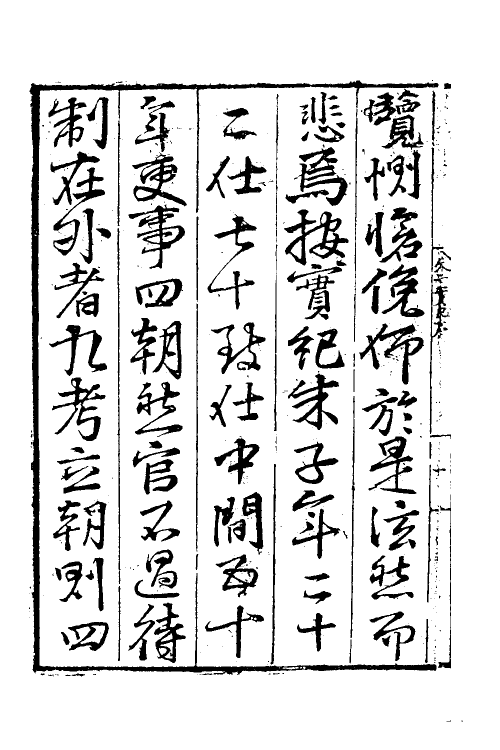 攬惻愴俛仰於是泫然而
悲焉按實紀朱子年二十
二仕七十致仕中間五十
年更事四朝然官不過待
制在外者九考立朝則四
朱子實紀序